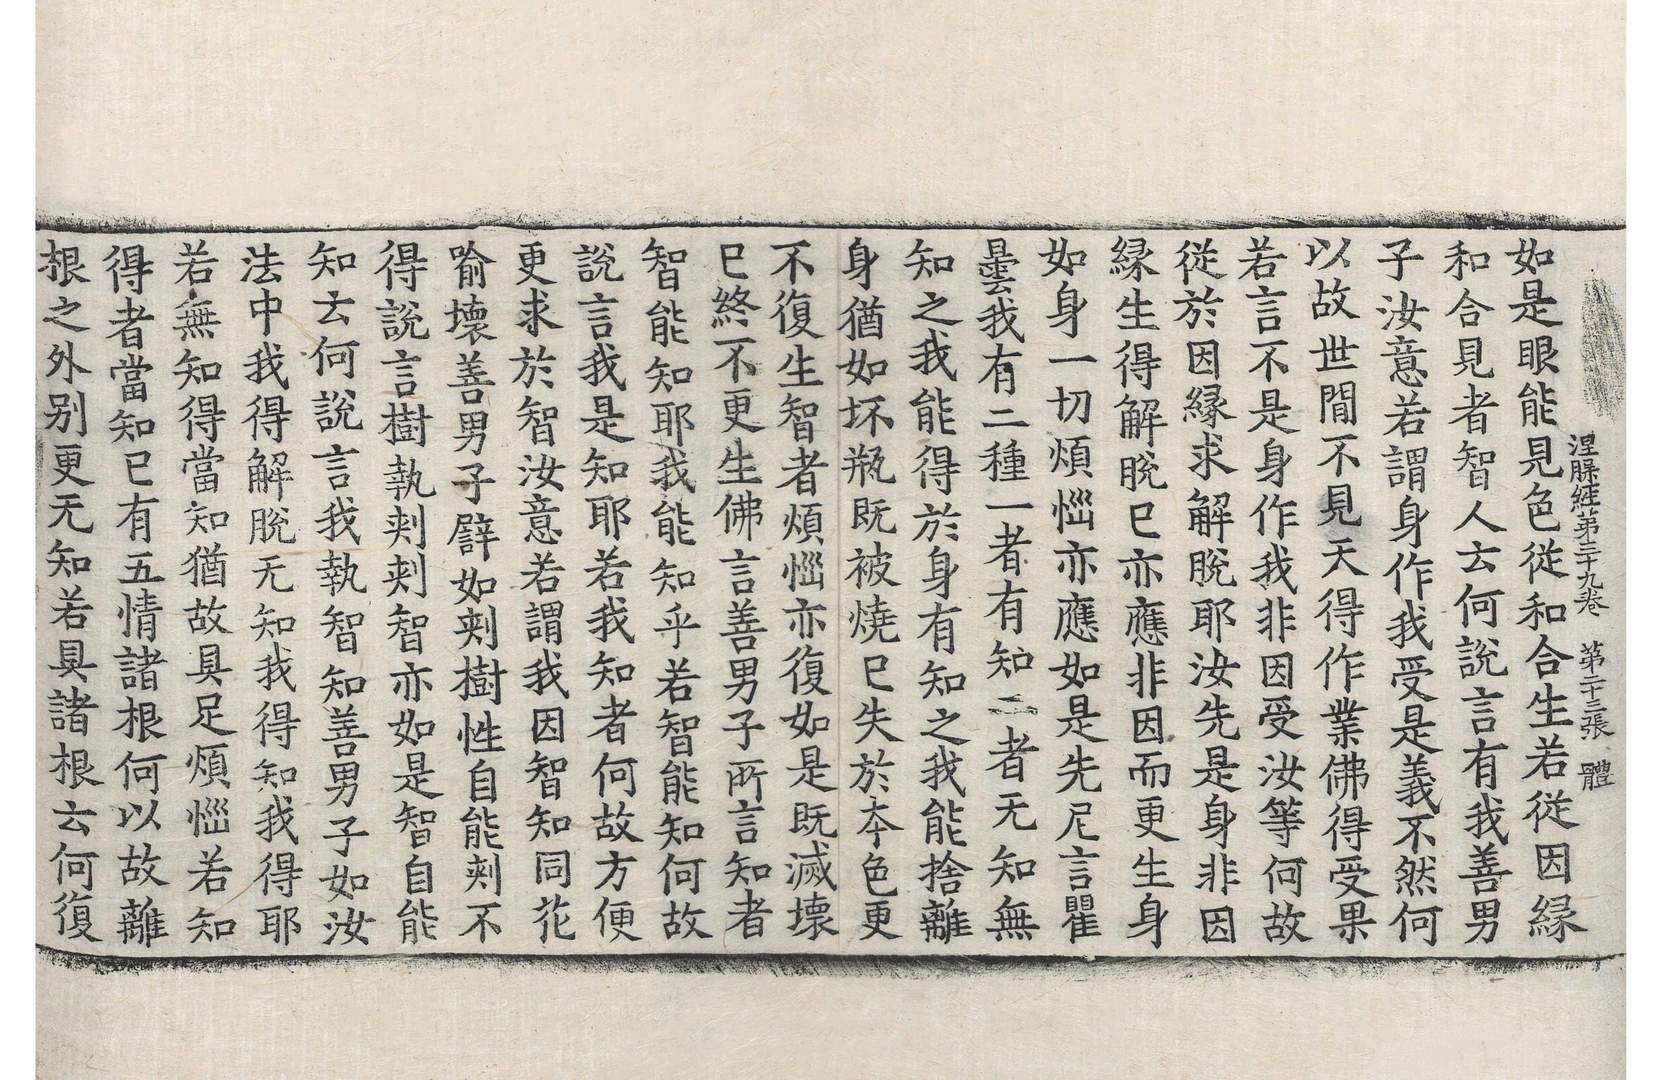 涅槃経第三十九卷　第二十三張　體
如是眼能見色從和合生若從因緣
和合見者智人云何說言有我善男
子汝意若謂身作我受是義不然何
以故世間不見天得作業佛得受果
若言不是身作我非因受汝等何故
從於因緣求解脫耶汝先是身非因
緣生得解脫已亦應非因而更生身
如身一切煩惱亦應如是先尼言瞿
曇我有二種一者有知二者无知無
知之我能得於身有知之我能捨離
身猶如坏瓶既被燒已失於本色更
不復生智者煩惱亦復如是既滅壞
已終不更生佛言善男子所言知者
智能知耶我能知乎若智能知何故
說言我是知耶若我知者何故方便
更求於智汝意若謂我因智知同花
喻壞善男子譬如刺樹性自能刺不
得說言樹執刺刺智亦如是智自能
知云何說言我執智知善男子如汝
法中我得解脫无知我得知我得耶
若無知得當知猶故具足煩惱若知
得者當知已有五情諸根何以故離
根之外別更无知若具諸根云何復